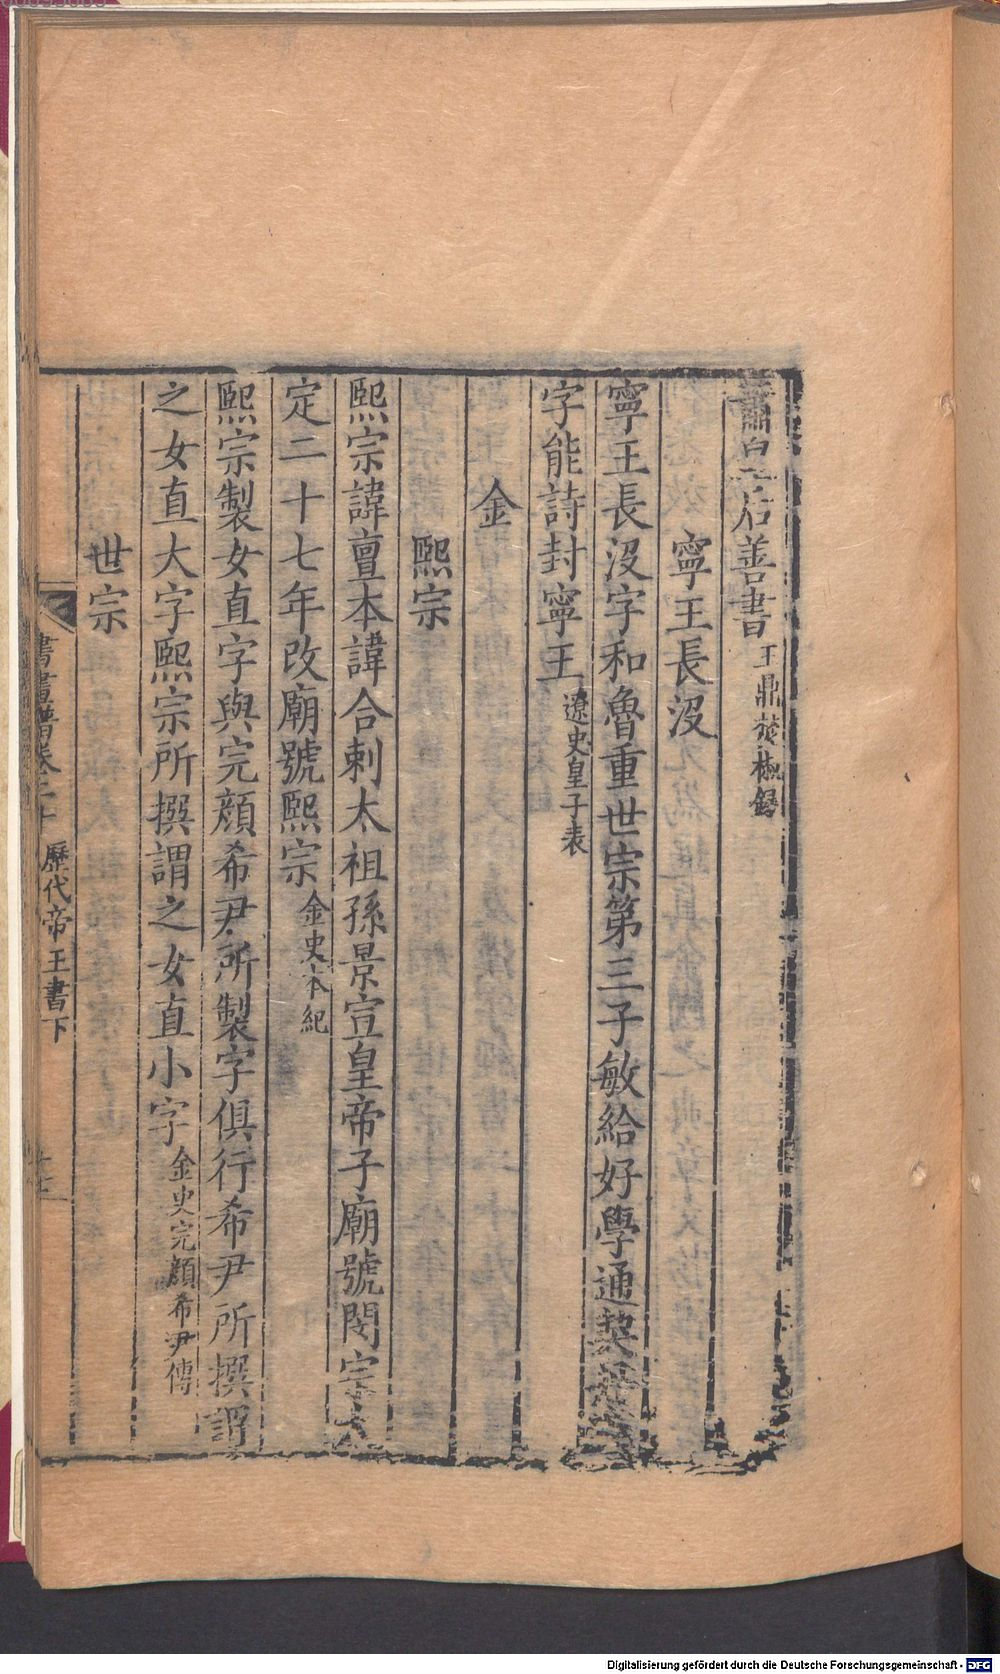 蕭皇后善書王鼎焚椒錄
寧王長沒
寧王長沒字和魯重世宗第三子敏給好學通契丹
字能詩封寧王遼史皇子表
金
熙宗
熙宗諱亶本諱合剌太祖孫景宣皇帝子廟號閔宗大
定二十七年改廟號熙宗金史本紀
熙宗製女直字與完顏希尹所製字俱行希尹所撰謂
之女直大字熙宗所撰謂之女直小字金史完顏希尹傳
世宗
書畫譜卷二十 歷代帝王書下
Digitalisierung gefördert durch die Deutsche Forschungsgemeinschaft - DFG